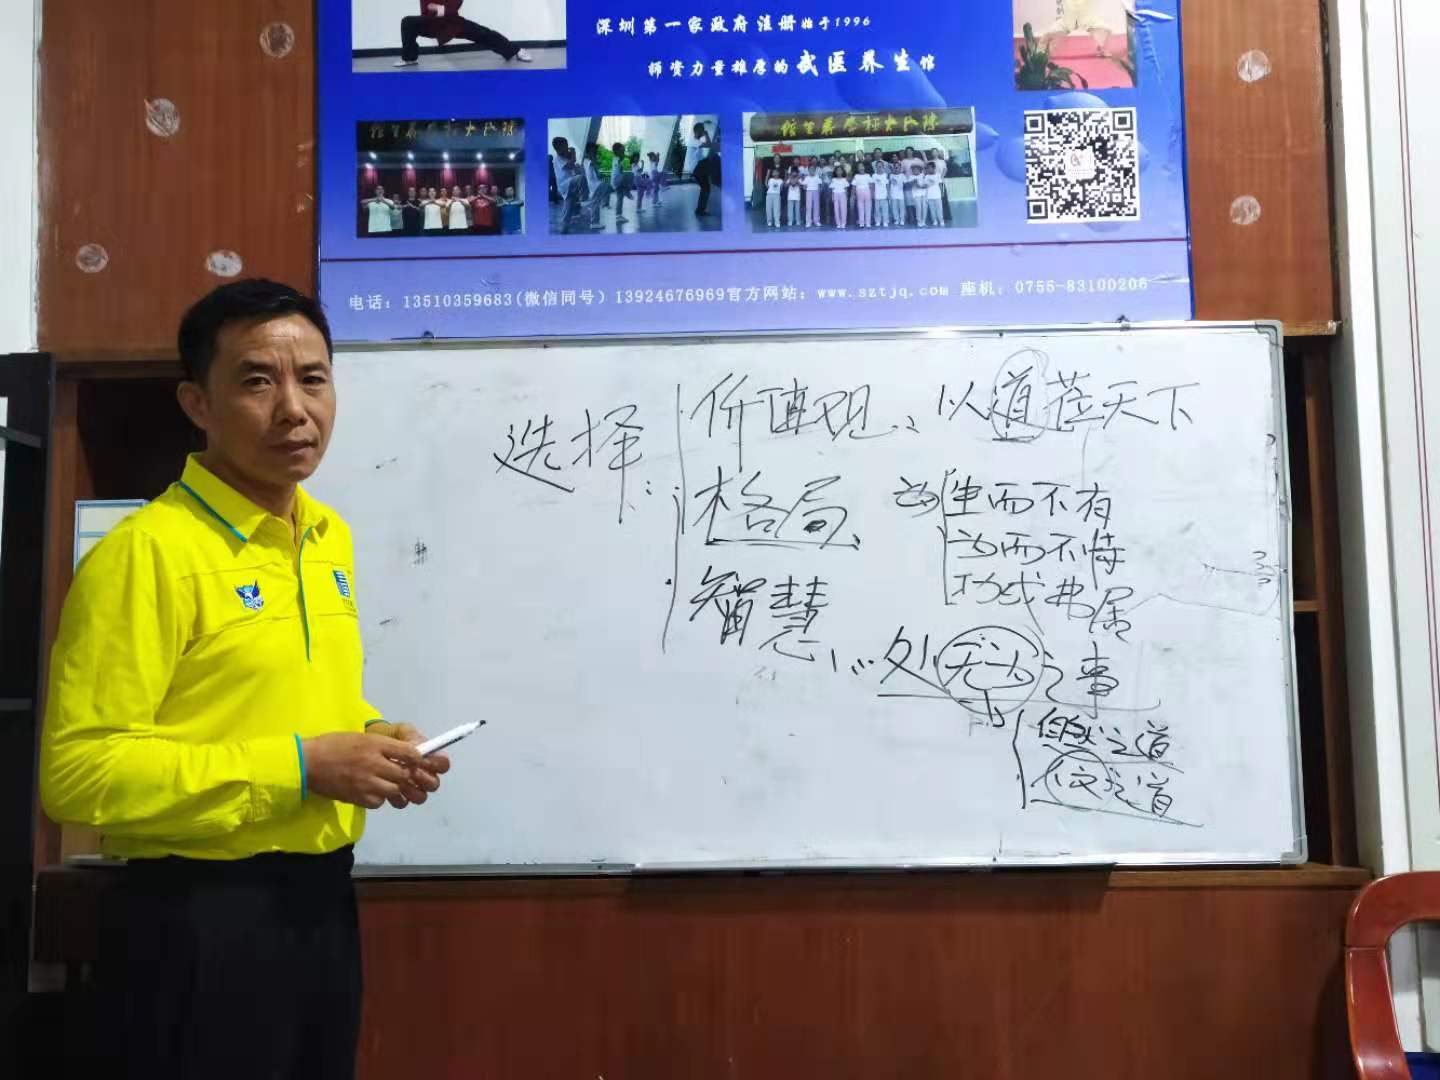 深圳第一家政府注册始于1996
师资力量雄厚的武医养生馆
电话：13510359683(微信同号) 13924676969官方网站：www.sztjq.com 座机：0755-83100206
选择：
价值观、以道莅天下
格局、为
生而不有
为而不恃
功成弗居
智慧、
处无为之事
自然之道
之道